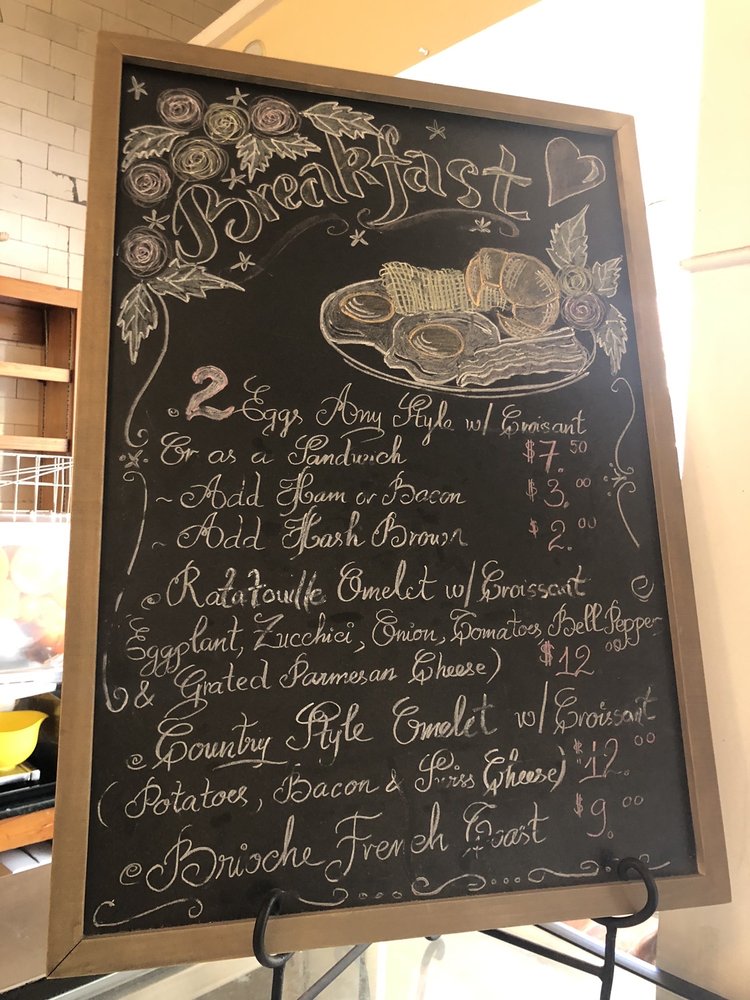 Breakfast
2 Eggs Any Style w/ Croisant
Or as a Sandwich $7.50
~ Add Ham or Bacon $3.00
~ Add Hash Brown $2.00
Ratatouille Omelet w/ Croissant
Eggplant, Zucchici, Onion, Tomatoes, Bell Pepper
& Grated Parmesan Cheese) $12.00
Country Style Omelet w/ Croissant
(Potatoes, Bacon & Swiss Cheese) $12.00
Brioche French Toast $9.00